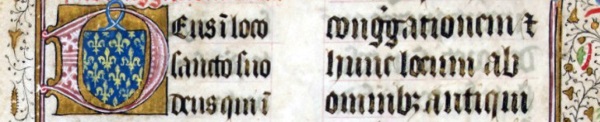 Deus i loco
sancto suo
deus qui i
congͣgationem ⁊
hunc locum ab
omnibꝫ antiqui